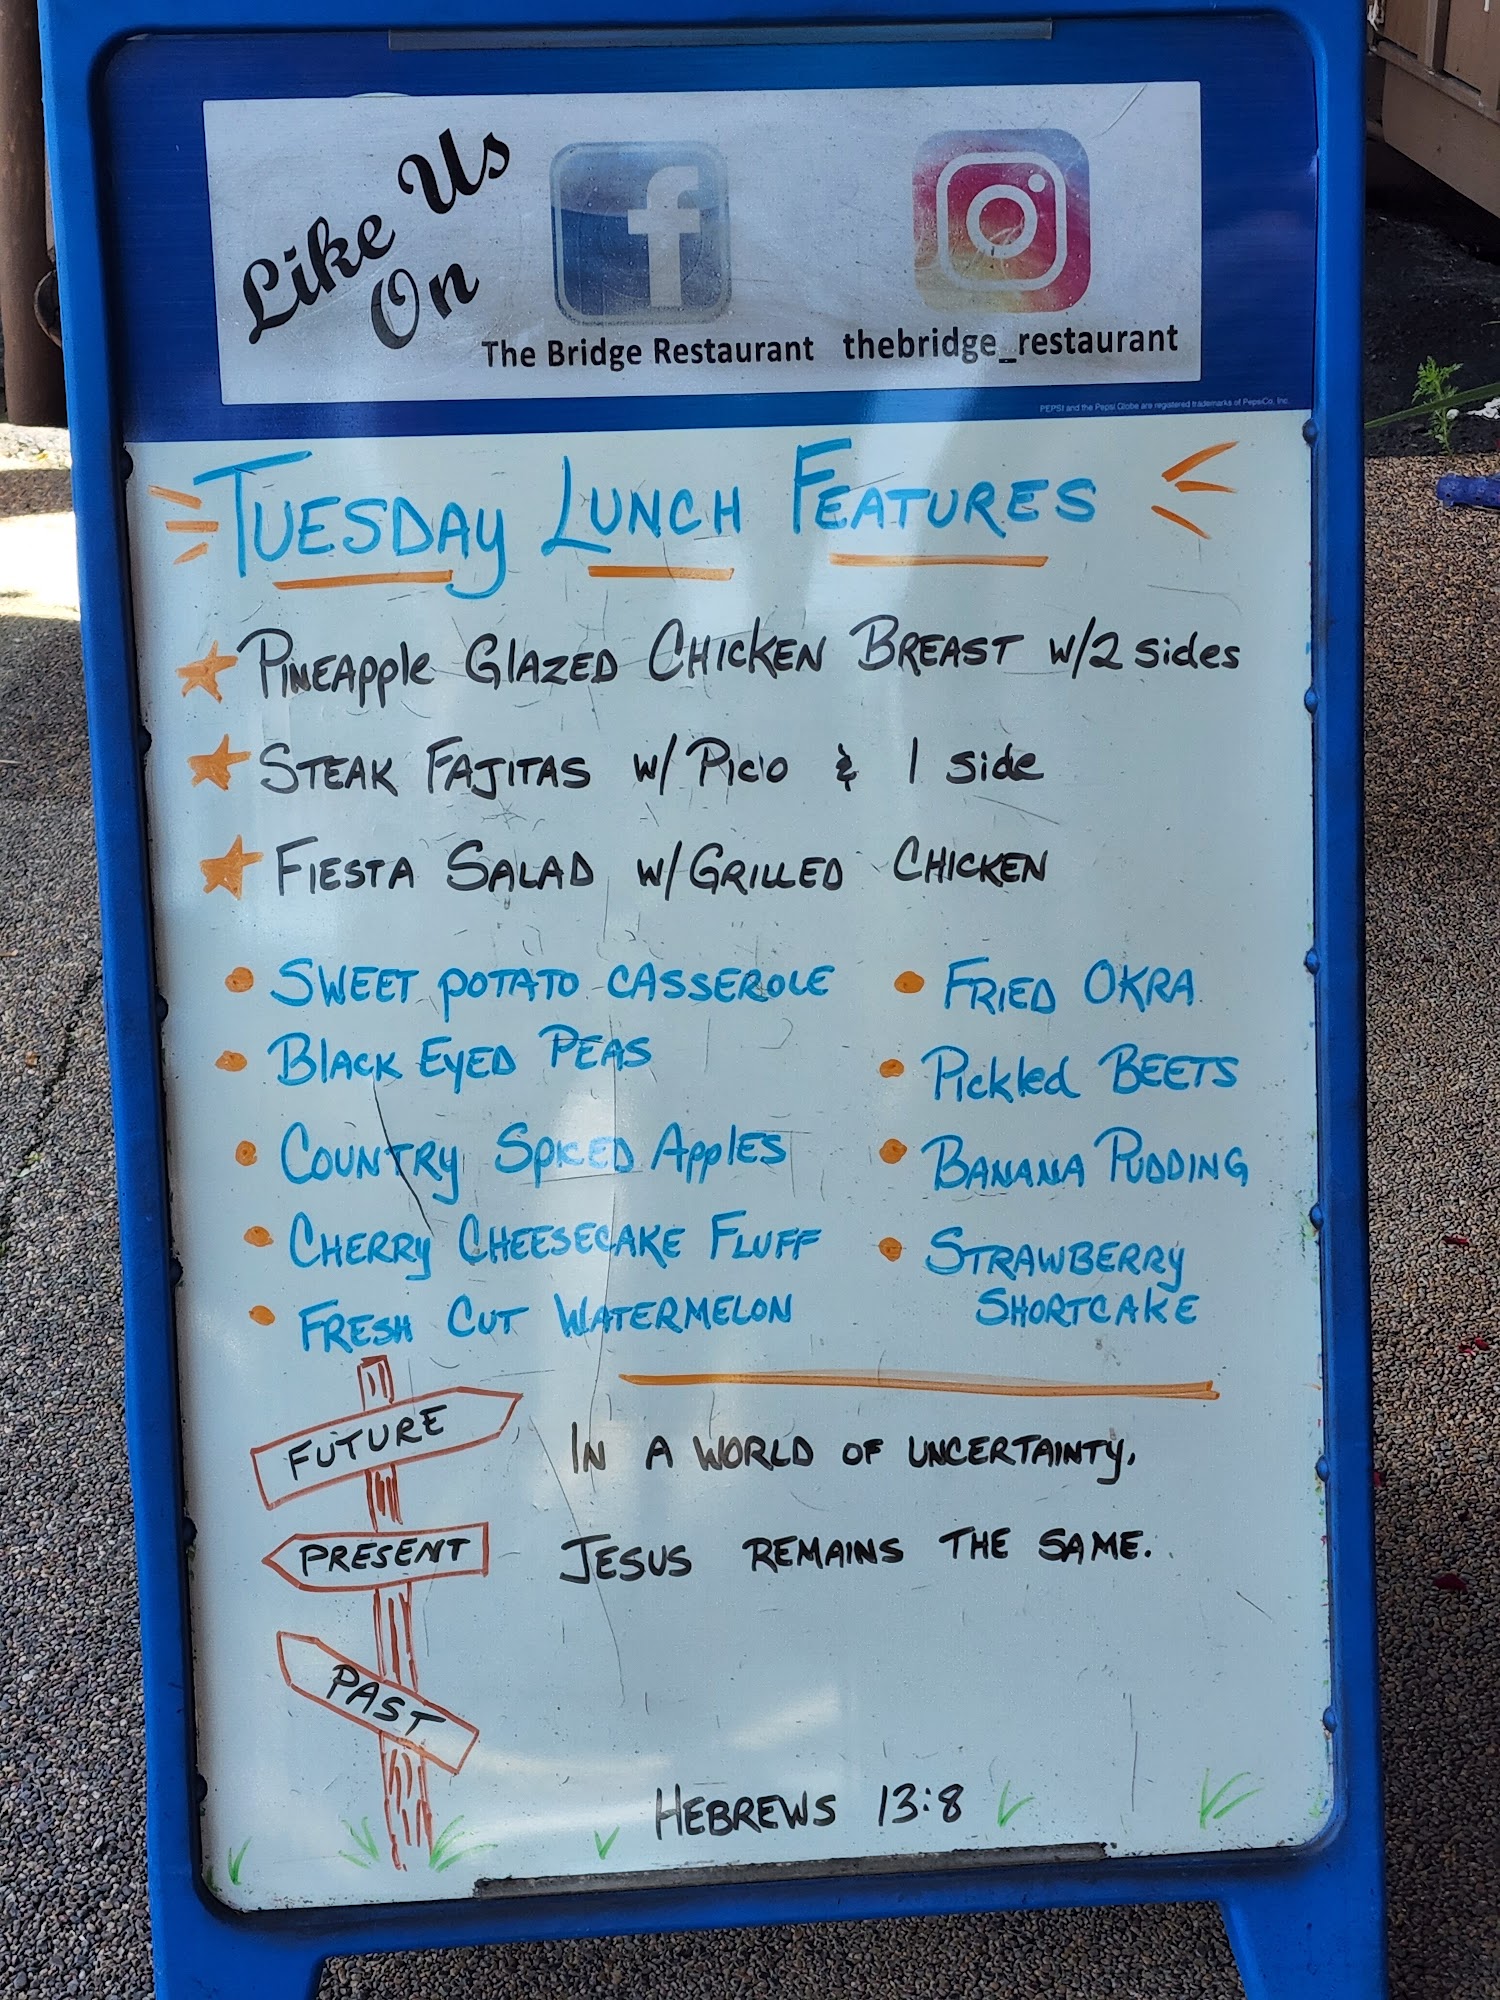 Like Us
On
The Bridge Restaurant
thebridge_restaurant
PEPSI and the Pepsi Globe are registered trademarks of PepsiCo, Inc.
TUESDAY LUNCH FEATURES
PINEApple GlAZED CHICKEN BREAST w/2 sides
STEAK FAJITAS w/ Pico & 1 side
FIESTA SALAD w/GRILLED CHICKEN
SWEET POTATO CASSEROLE
BlACK EYED PEAS
COUNTRY SPICED ApplES
CHERRY CHEESECAKE FLUFF
FRESH CUT WATERMELON
FRIED OKRA
Pickled BEETS
BANANA PUDDING
STRAWBERRY
SHORTCAKE
FUTURE
PRESENT
PAST
IN A WORLD OF UNCERTAINTY,
JESUS REMAINS THE SAME.
HEBREWS 13:8